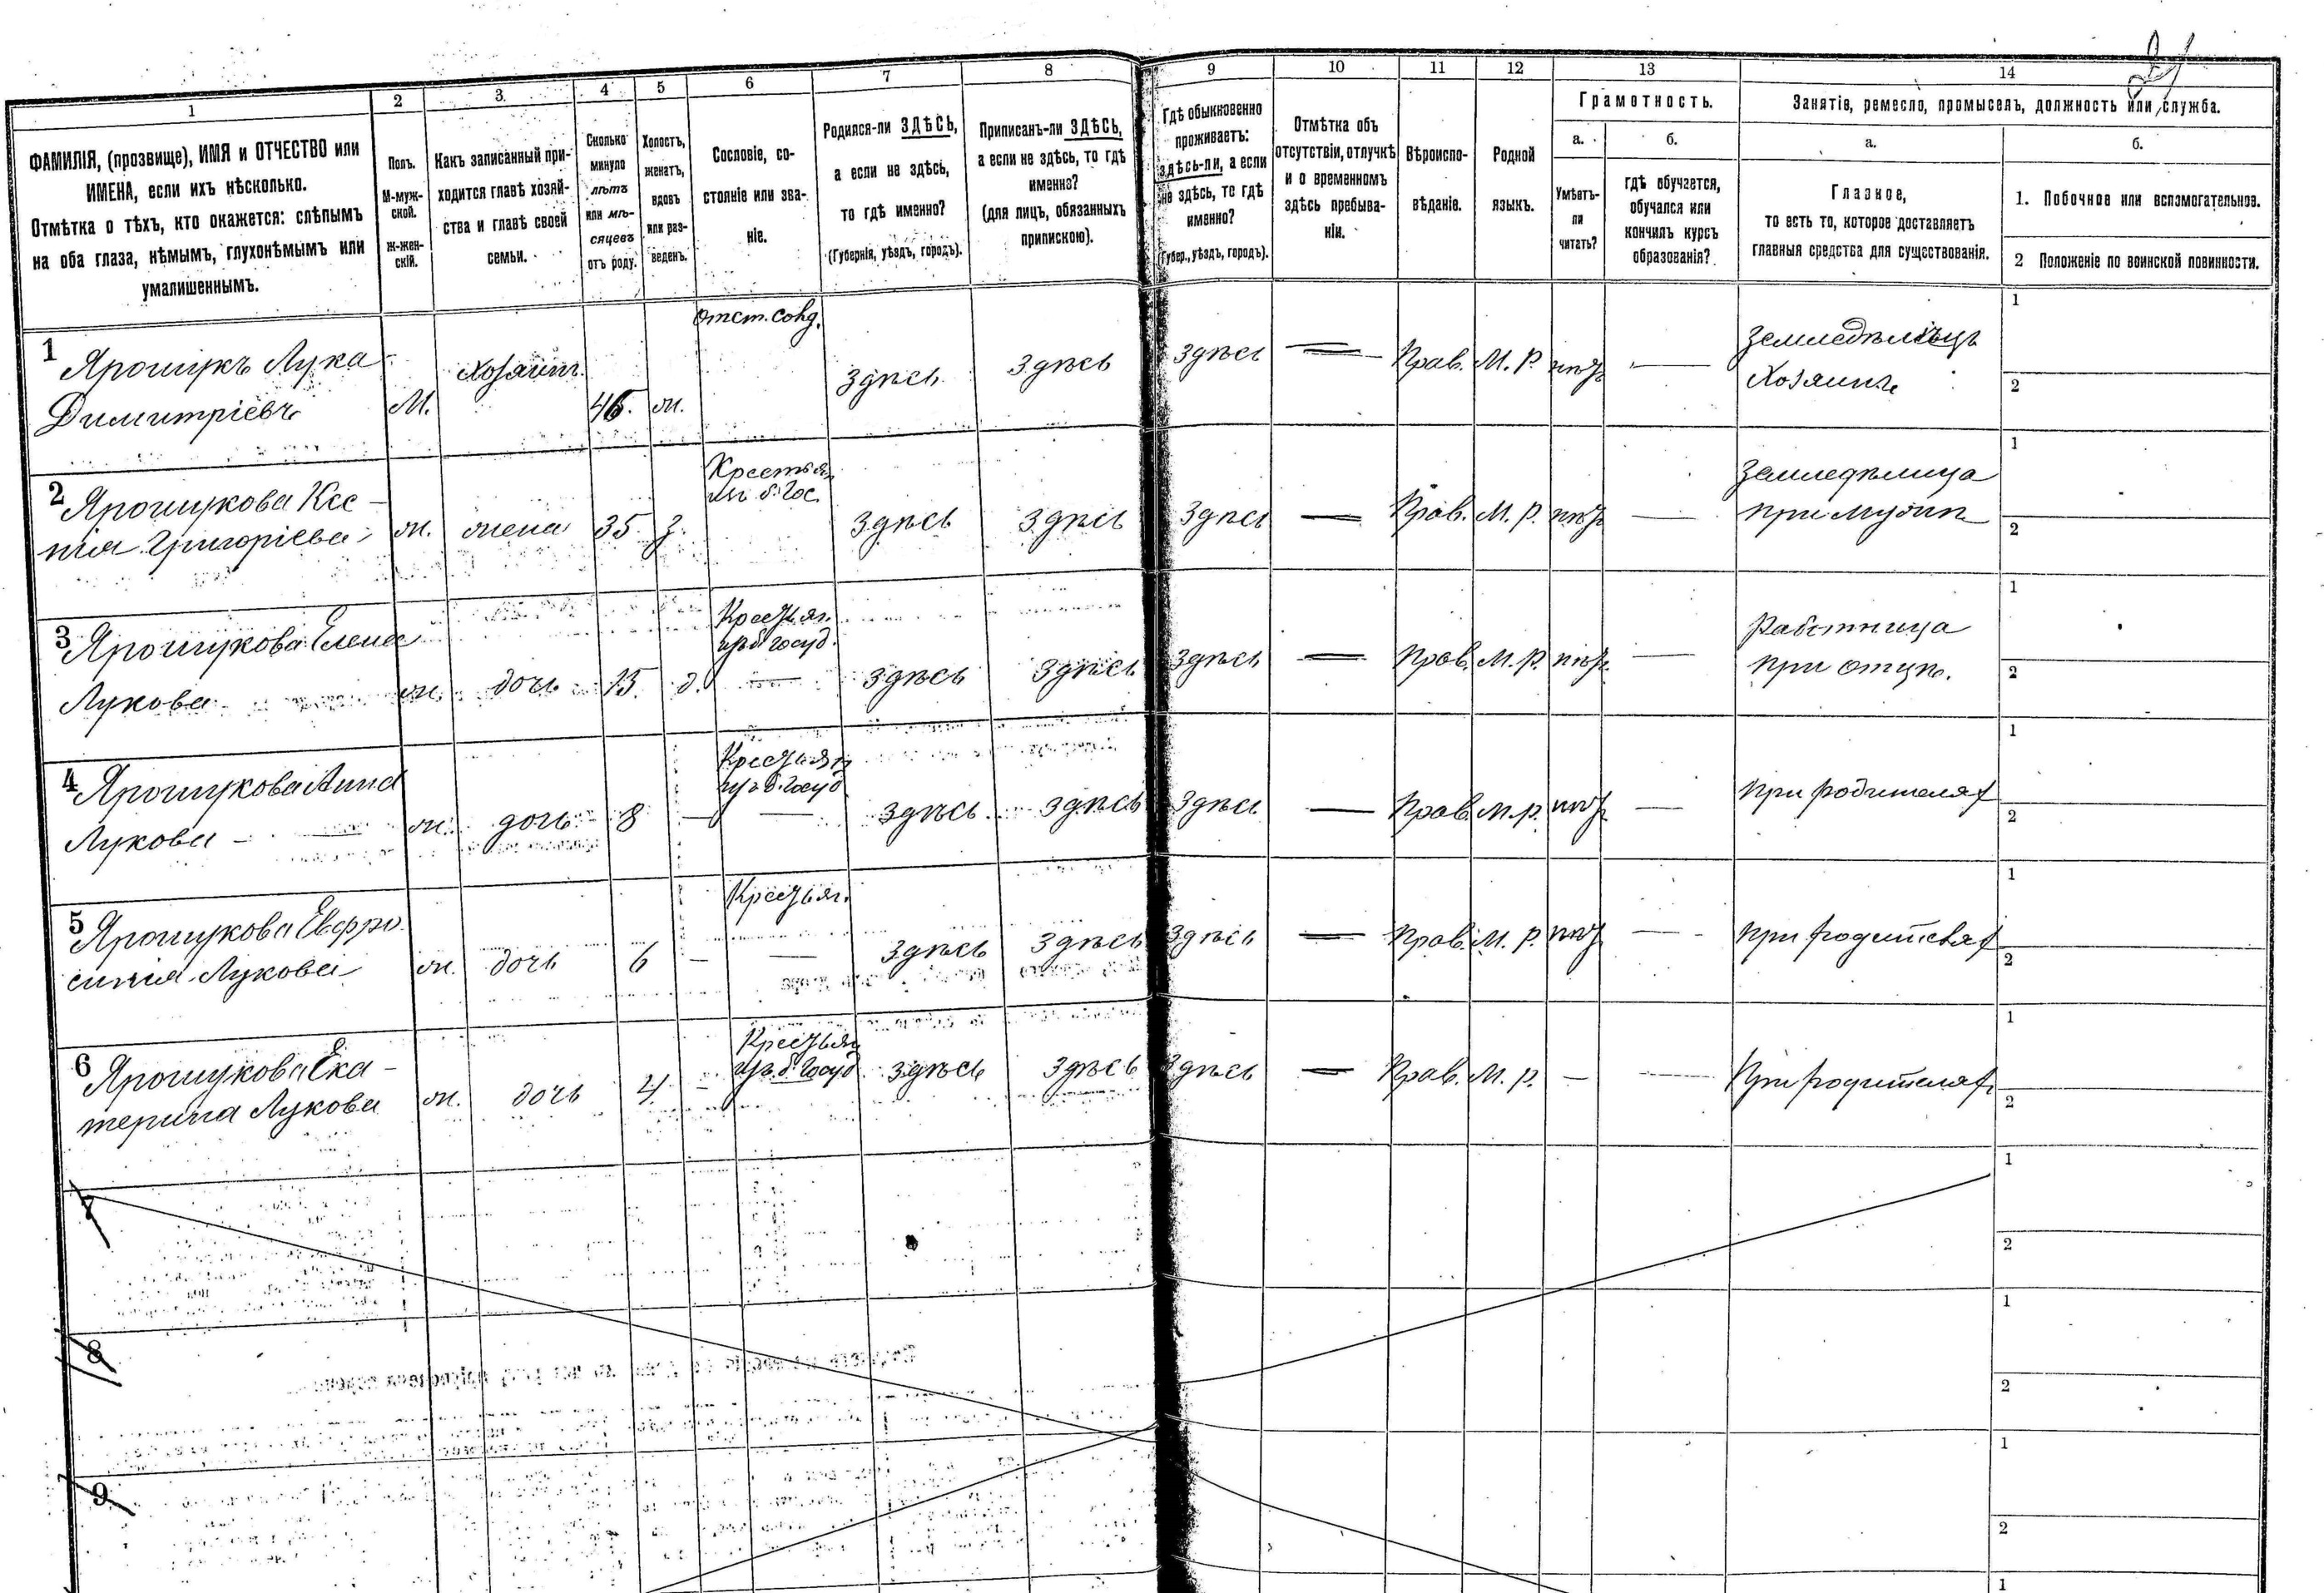 1 2 3 4 5 6 7 8 9 10 11 12 13 14
ФАМИЛІЯ, (прозвище), ИМЯ и ОТЧЕСТВО или
ИМЕНА, если ихъ нѣсколько.
Отмѣтка о тѣхъ, кто окажется: слѣпымъ
на оба глаза, нѣмымъ, глухонѣмымъ или
умалишеннымъ.
Полъ.
М-муж-
ской.
Ж-жен-
скій.
Какъ записанный при-
ходится главѣ хозяй-
ства и главѣ своей
семьи.
Сколько
минуло
лѣтъ
или мѣ-
сяцевъ
отъ роду.
Холостъ,
женатъ,
вдовъ
или раз-
веденъ.
Сословіе, со-
стояніе или зва-
ніе.
Родился-ли ЗДѢСЬ,
а если не здѣсь,
то гдѣ именно?
(Губернія, уѣздъ, городъ).
Приписанъ-ли ЗДѢСЬ,
а если не здѣсь, то гдѣ
именно?
(для лицъ, обязанныхъ
припискою).
Гдѣ обыкновенно
проживаетъ:
здѣсь-ли, а если
не здѣсь, то гдѣ
именно?
(Губер., уѣздъ, городъ).
Отмѣтка объ
отсутствіи, отлучкѣ
и о временномъ
здѣсь пребыва-
ніи.
Вѣроиспо-
вѣданіе.
Родной
языкъ.
Грамотность.
а.
Умѣетъ-
ли
читать?
б.
гдѣ обучается,
обучался или
кончилъ курсъ
образованія?
Занятіе, ремесло, промыселъ, должность или служба.
а.
Главное,
то есть то, которое доставляетъ
главныя средства для существованія.
б.
1. Побочное или вспомогательное.
2 Положеніе по воинской повинности.
1 Ярощукъ Лука
Димитріевъ
М. Хозяинъ 46. ж. здѣсь здѣсь здѣсь — Прав. М. Р. нѣтъ —
Земледѣлецъ
Хозяинъ
1
2
2 Ярощукова Ксе-
нія Григоріева
ж. жена 35 з.
Крестьян
изъ б. Гос.
здѣсь здѣсь здѣсь — Прав. М. Р. нѣтъ —
Земледѣлица
при мужѣ
1
2
3 Ярощукова Елена
Лукова
ж. дочь 15. д.
Крестьян.
изъ б. госуд.
—
здѣсь здѣсь здѣсь — Прав. М. Р. нѣтъ —
Работница
при отцѣ.
1
2
4 Ярощукова Анна
Лукова —
ж. дочь 8 —
Крестьян
изъ б. госуд
—
здѣсь здѣсь здѣсь — Прав. М. Р. нѣтъ —
при родителях
1
2
5 Ярощукова Евфро
синія Лукова
ж. дочь 6 —
Крестьян.
—
здѣсь здѣсь здѣсь — Прав. М. Р. нѣтъ —
при родителях
1
2
6 Ярощукова Ека-
терина Лукова
ж. дочь 4 —
Крестьян
изъ б. Госуд
здѣсь здѣсь здѣсь — Прав. М. Р. — —
При родителях
1
2
7
1
2
8
1
2
9
1
2
1